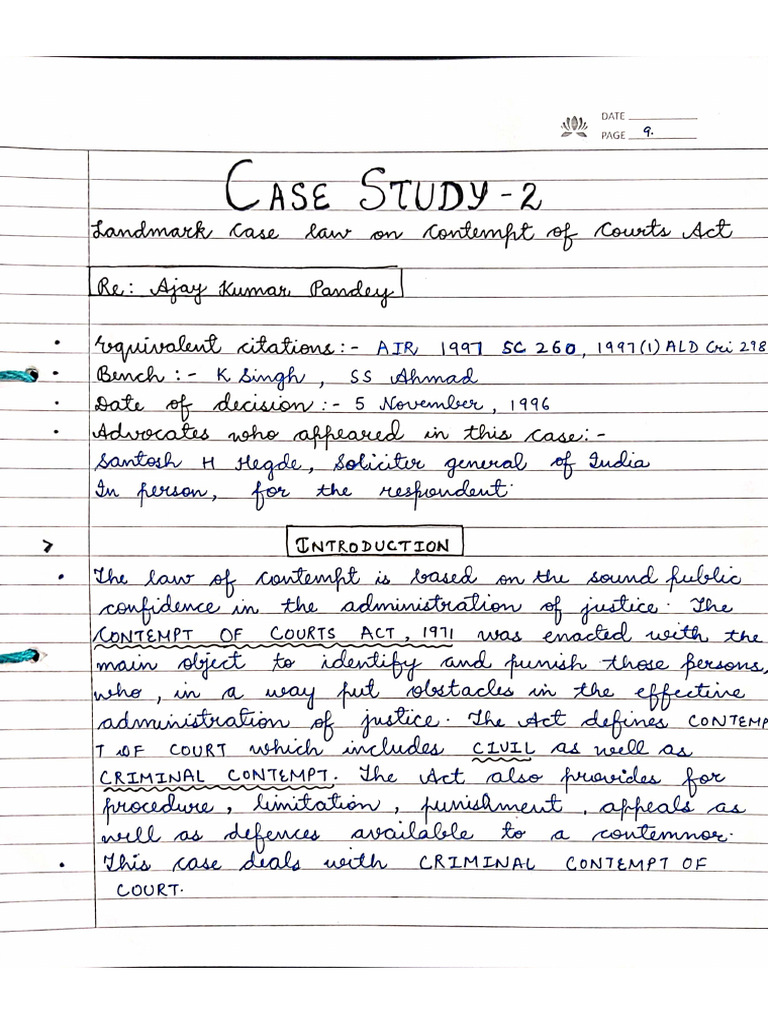 DATE
PAGE 9.
CASE STUDY - 2
Landmark case law on contempt of Courts Act
Re: Ajay Kumar Pandey
• Equivalent citations :- AIR 1997 SC 260, 1997(1) ALD Cri 298
• Bench :- K Singh, SS Ahmad
• Date of decision :- 5 November, 1996
• Advocates who appeared in this case:-
Santosh H Hegde, Soliciter general of India
In person, for the respondent.
> INTRODUCTION
• The law of contempt is based on the sound public
confidence in the administration of justice. The
CONTEMPT OF COURTS ACT, 1971 was enacted with the
main object to identify and punish those persons,
who, in a way put obstacles in the effective
administration of justice. The Act defines CONTEMP
T OF COURT which includes CIVIL as well as
CRIMINAL CONTEMPT. The Act also provides for
procedure, limitation, punishment, appeals as
well as defences available to a contemnor.
• This case deals with CRIMINAL CONTEMPT OF
COURT.